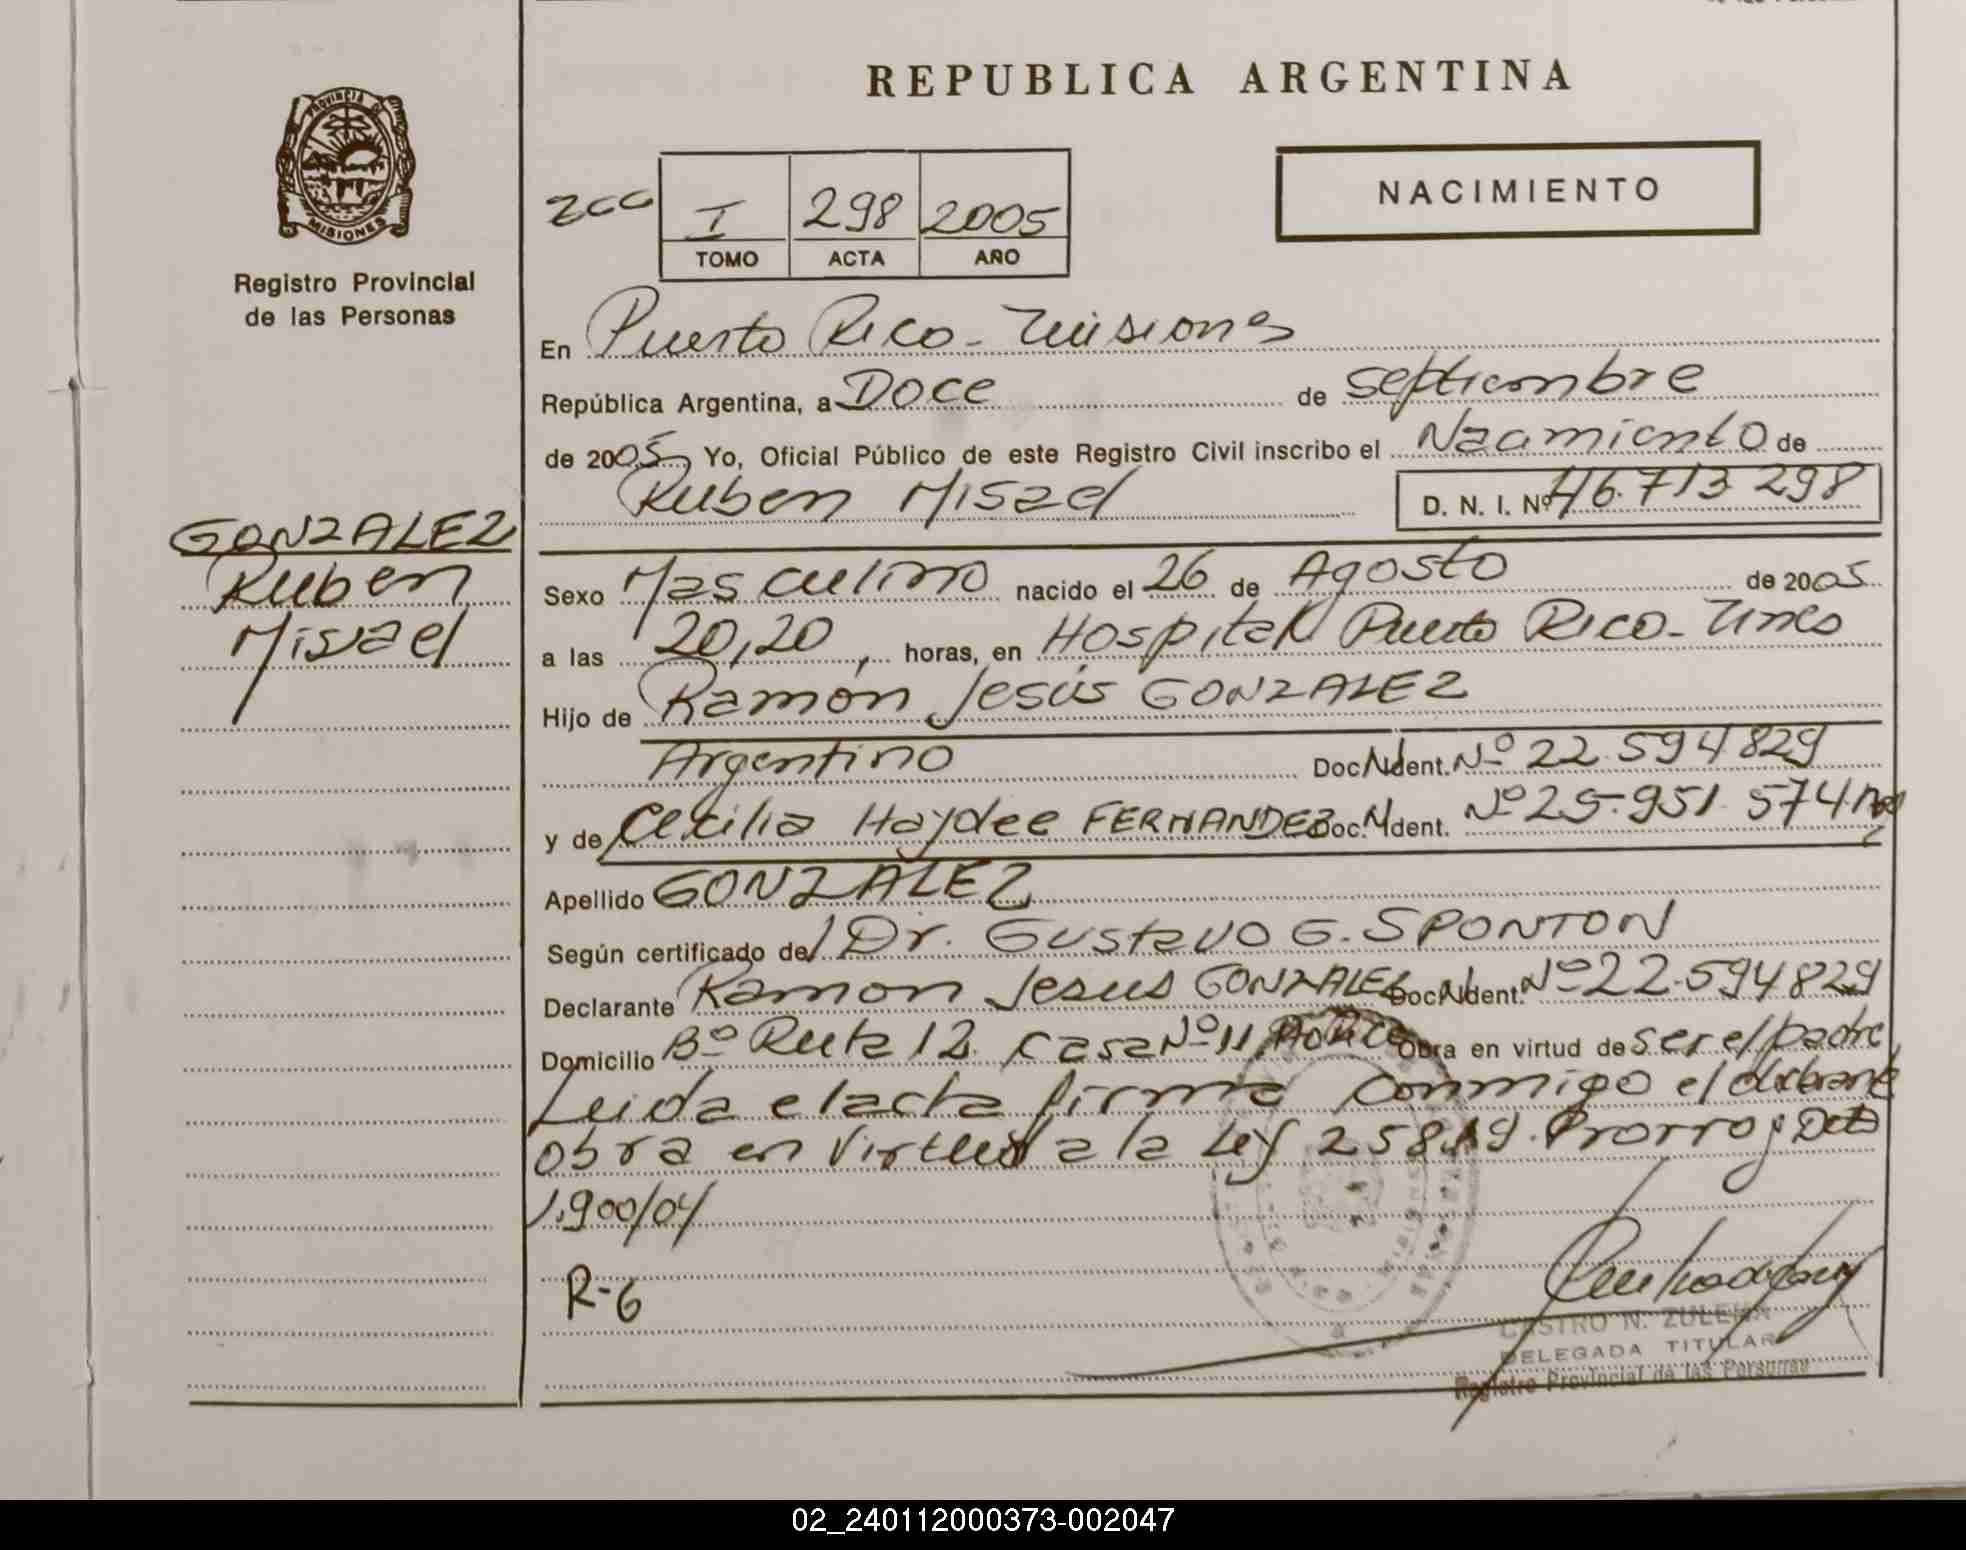 REPUBLICA ARGENTINA
PROVINCIA DE
MISIONES
Registro Provincial
de las Personas
NACIMIENTO
I 298 2005
TOMO ACTA AÑO
En Puerto Rico - Misiones
República Argentina, a Doce de septiembre
de 2005 Yo, Oficial Público de este Registro Civil inscribo el Nacimiento de
Ruben Misael D. N. I. Nº 46.713.298
GONZALEZ
Ruben
Misael
Sexo Masculino nacido el 26 de Agosto de 2005
a las 20,20, horas, en Hospital Puerto Rico - Mnes
Hijo de Ramón Jesús GONZALEZ
Argentino Doc. Ident. Nº 22.594.829
y de Cecilia Haydee FERNANDEZ Doc. Ident. Nº 25.951.574
Apellido GONZALEZ
Según certificado del Dr. Gustavo G. SPONTON
Declarante Ramon Jesus GONZALEZ Doc. Ident. Nº 22.594.829
Domicilio Bº Ruta 12 Casa Nº 11 Obra en virtud de ser el padre
Leida el acta firma conmigo el declarante
obra en virtud a la Ley 25819. Prorrog Dcto
1.900/04
R-6
CASTRO N. ZULEMA
DELEGADA TITULAR
Registro Provincial de las Personas
02_240112000373-002047